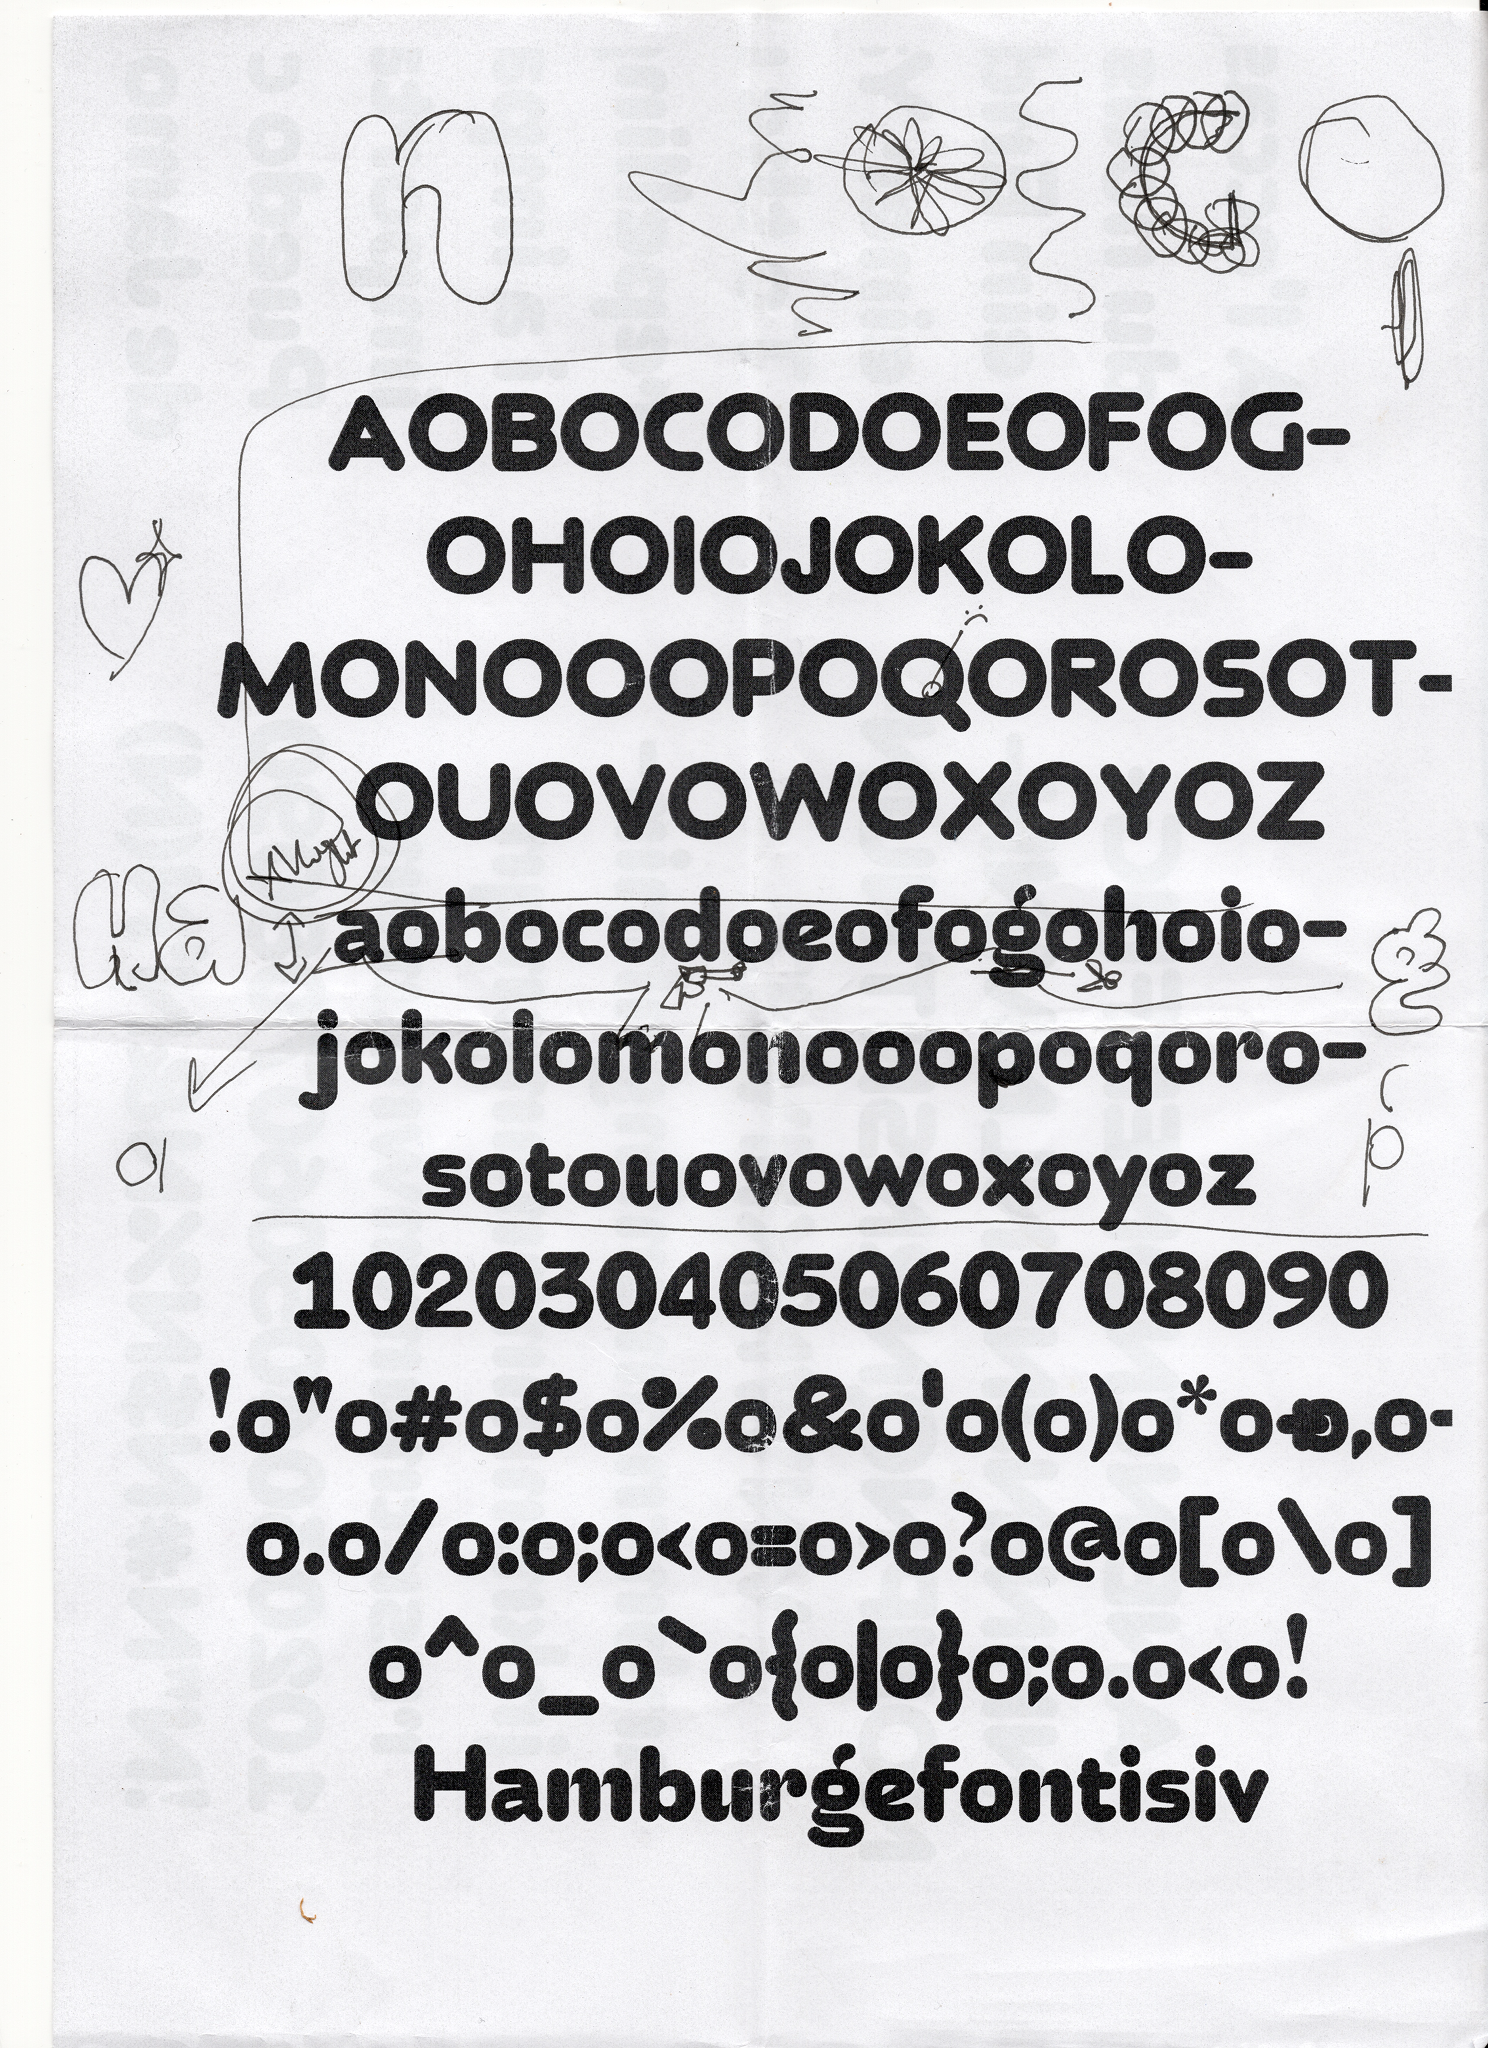 n
AOBOCODOEOFOG-
OHOIOJOKOLO-
MONOOOPOQOROSOT-
OUOVOWOXOYOZ
Ha
aobocodoeofogohoio-
g
jokolomonooopoqoro-
a
p
sotouovowoxoyoz
102030405060708090
!o"o#o$o%o&o'o(o)o*o+o,o-
o.o/o:o;o<o=o>o?o@o[o\o]
o^o_o`o{o|o}o;o.o<o!
Hamburgefontisiv